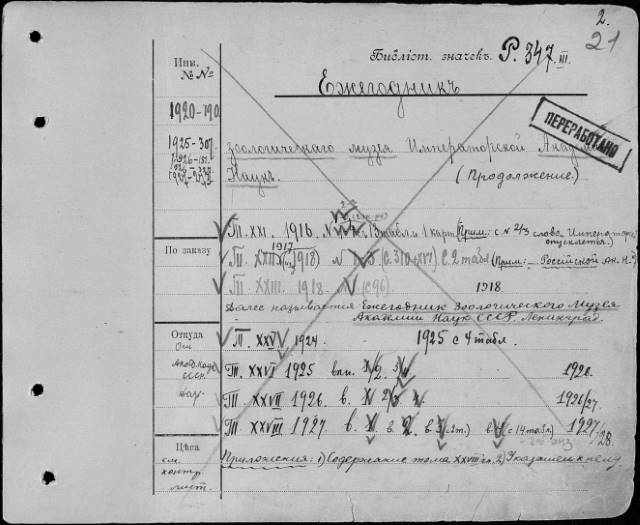 2.
21
Библіот. значекъ. P. 347. III.
Инв.
№ №
Ежегодникъ
1920-190
ПЕРЕРАБОТАНО
1925-307
Зоологическаго музея Императорской Академіи
Наукъ. (Продолженіе.)
Т. XXI. 1916. N 3 табл. и 1 карт. (Прим.: с N 2/3 слово „Императорск."
опускается.)
По заказу
1917
Т. XXII (1918) N (с. 310+XVI) с 2 табл. (Прим.: Россійской Ак. Н.")
Т. XXIII. 1918. N (с 96) 1918.
Далее называется Ежегодник Зоологического Музея
Академии Наук СССР. Ленинград.
Откуда
Т. XXV 1924 1925 с 4 табл.
Т. XXVI 1925 вып. 1/2 3/4 1926.
Т. XXVII 1926. в. 1 2/3 4 1926/27.
Т. XXVIII 1927. в. 1 в. 2. в. 3 в. 4 (с 14 табл.) 1927/28.
Цѣна
см.
контр.
лист.
Приложения: 1) Содержание тома XXVIII-го. 2) Указатель к нему.